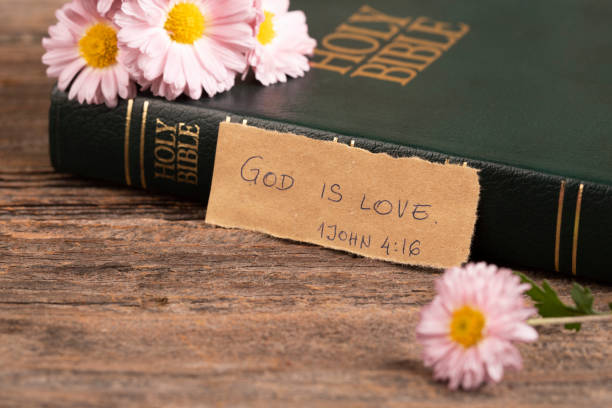 HOLY
BIBLE
HOLY
BIBLE
GOD IS LOVE.
1 JOHN 4:16